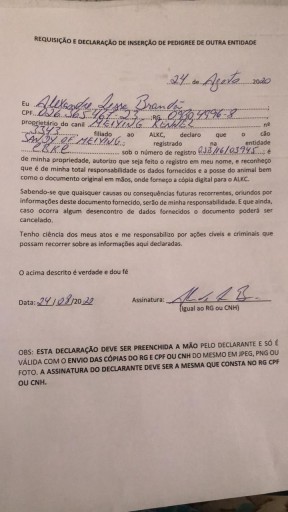 REQUISIÇÃO E DECLARAÇÃO DE INSERÇÃO DE PEDIGREE DE OUTRA ENTIDADE
24 de Agosto 2020
Eu Alexandre Brandão
CPF RG 09304596-8
proprietário do canil MEIYING KENNEL nº
3343 filiado ao ALKC, declaro que o cão
SANDY OF MEIYING registrado na entidade
CBKC sob o número de registro e
de minha propriedade, autorizo que seja feito o registro em meu nome, e reconheço
que é de minha total responsabilidade os dados fornecidos e a posse do animal bem
como o documento original em mãos, onde forneço a cópia digital para o ALKC.
Sabendo-se que quaisquer causas ou consequências futuras recorrentes, oriundos por
informações deste documento fornecido, serão de minha responsabilidade. E que ainda,
caso ocorra algum desencontro de dados fornecidos o documento poderá ser
cancelado.
Tenho ciência dos meus atos e me responsabilizo por ações cíveis e criminais que
possam recorrer sobre as informações aqui declaradas.
O acima descrito é verdade e dou fé
Data: 24/08/2020 Assinatura:
(Igual ao RG ou CNH)
OBS: ESTA DECLARAÇÃO DEVE SER PREENCHIDA A MÃO PELO DECLARANTE E SÓ É
VÁLIDA COM O ENVIO DAS CÓPIAS DO RG E CPF OU CNH DO MESMO EM JPEG, PNG OU
FOTO. A ASSINATURA DO DECLARANTE DEVE SER A MESMA QUE CONSTA NO RG CPF
OU CNH.